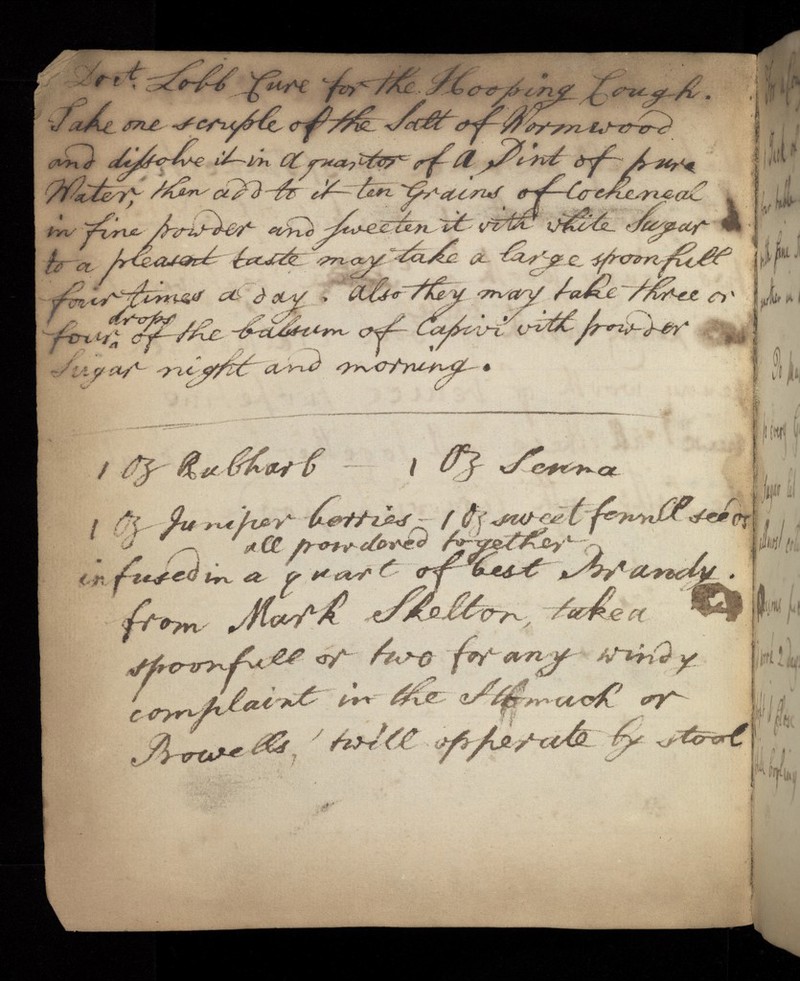 Doct. Lobb Cure for the Hooping Cough.
Take one scruple of the Salt of Wormwood
and dissolve it in a quarter of a Pint of pure
Water, then add to it ten Grains of Cocheneal
in fine powder and sweeten it with white Sugar
to a pleasant taste may take a large spoonfull
four times a day. also they may take three or
drops
four of the balsum of Capivi with powder
Sugar night and morning.
1 Oz Rubharb — 1 Oz Senna
1 Oz Juniper berries - 1 Oz sweet fennll seeds
all powdered together
infused in a quart of best Brandy.
from Mark Skelton, take a
spoonfull or two for any windy
complaint in the Stomach or
Bowells, 'twill opperate by stool